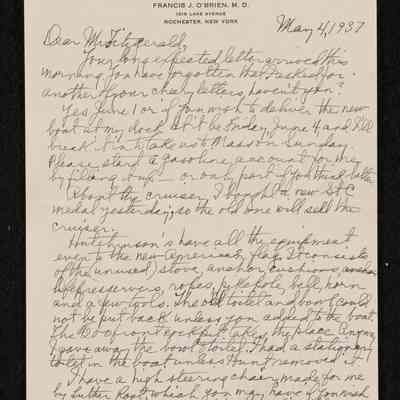 FRANCIS J. O'BRIEN, M. D.
1819 LAKE AVENUE
ROCHESTER, NEW YORK
May 4, 1937
Dear Mr Fitzgerald,
Your long expected letter arrived this
morning. You have forgotten that I asked for
another of your cheery letters, haven't you?
Yes June 1 or if you wish to deliver the new
boat at my dock let it be Friday, June 4 and I'll
break it in to take us to Mass on Sunday.
Please start a gasoline account for me
by filling it up — or only part if you think better
About the cruiser, I bought a new St C
medal yesterday, so the old one will sell the
cruiser.
Hutchinson's have all the equipment
even to the new American flag. It consists
of the (unused) stove, anchor, cushions, anchor
life preservers, ropes, pike pole, bell, horn
and a few tools. The old toilet and bowl could
not be put back unless you added to the boat.
The cockpit takes the place. Anyway
I gave away the bowl & toilet. I had a stationary
toilet in the boat unless Hunt removed it.
I have a high steering chair made for me
by Luther which you may have if you wish